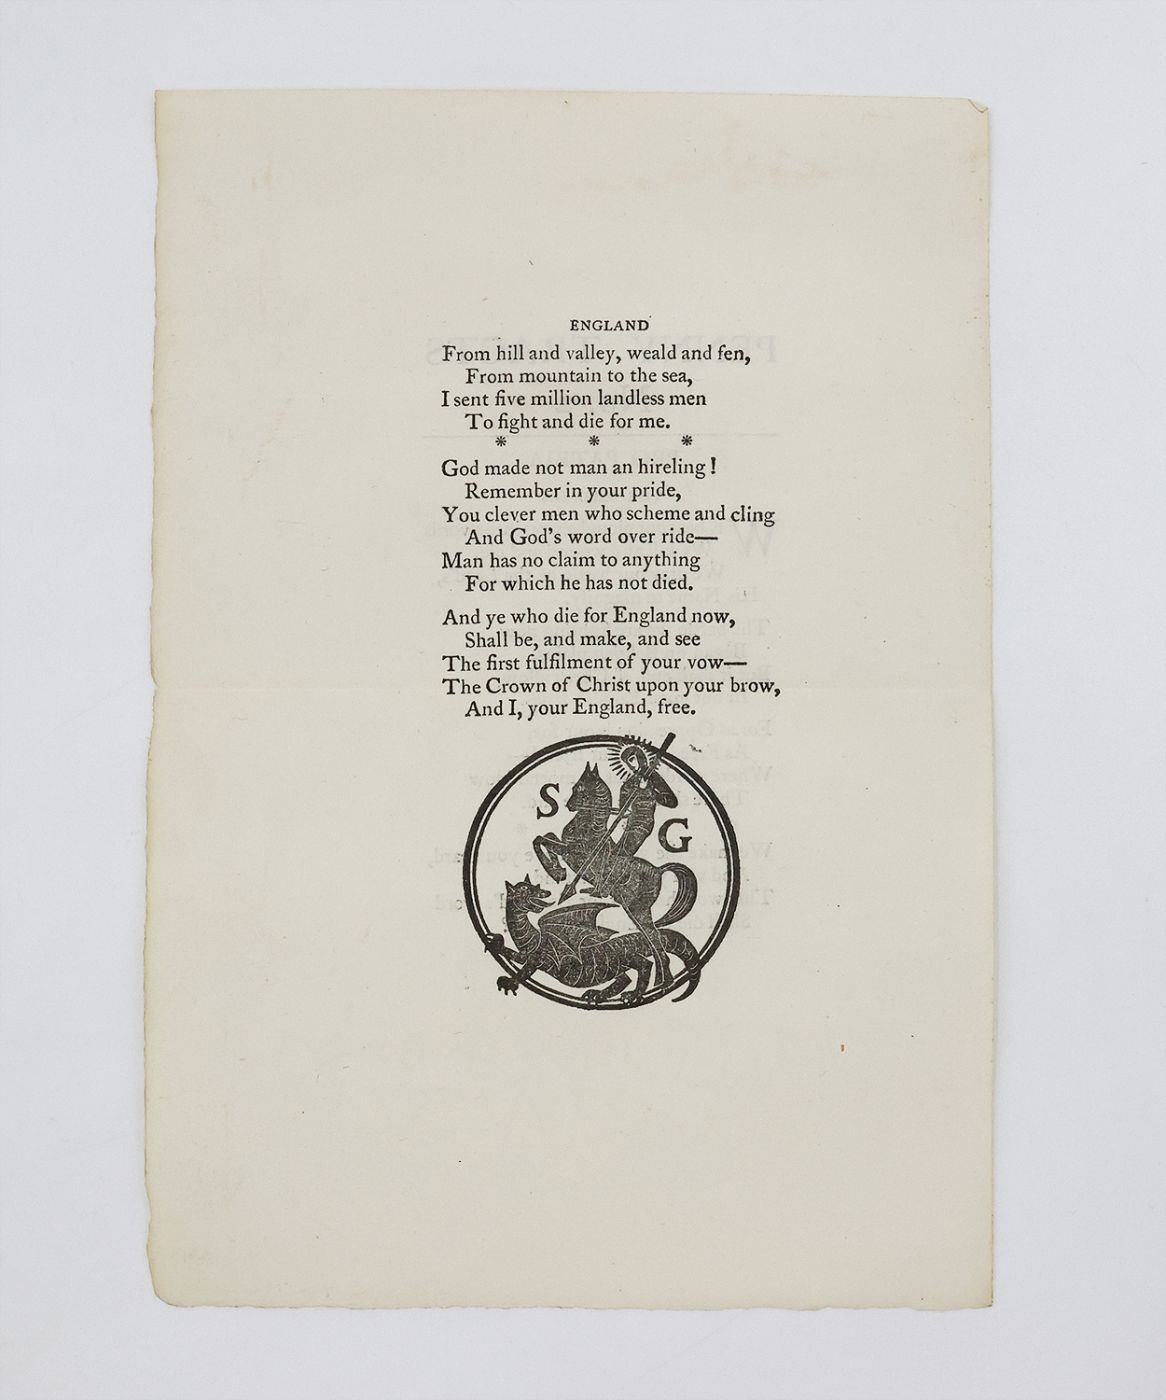 ENGLAND
From hill and valley, weald and fen,
From mountain to the sea,
I sent five million landless men
To fight and die for me.
* * *
God made not man an hireling!
Remember in your pride,
You clever men who scheme and cling
And God's word over ride—
Man has no claim to anything
For which he has not died.
And ye who die for England now,
Shall be, and make, and see
The first fulfilment of your vow—
The Crown of Christ upon your brow,
And I, your England, free.
S G